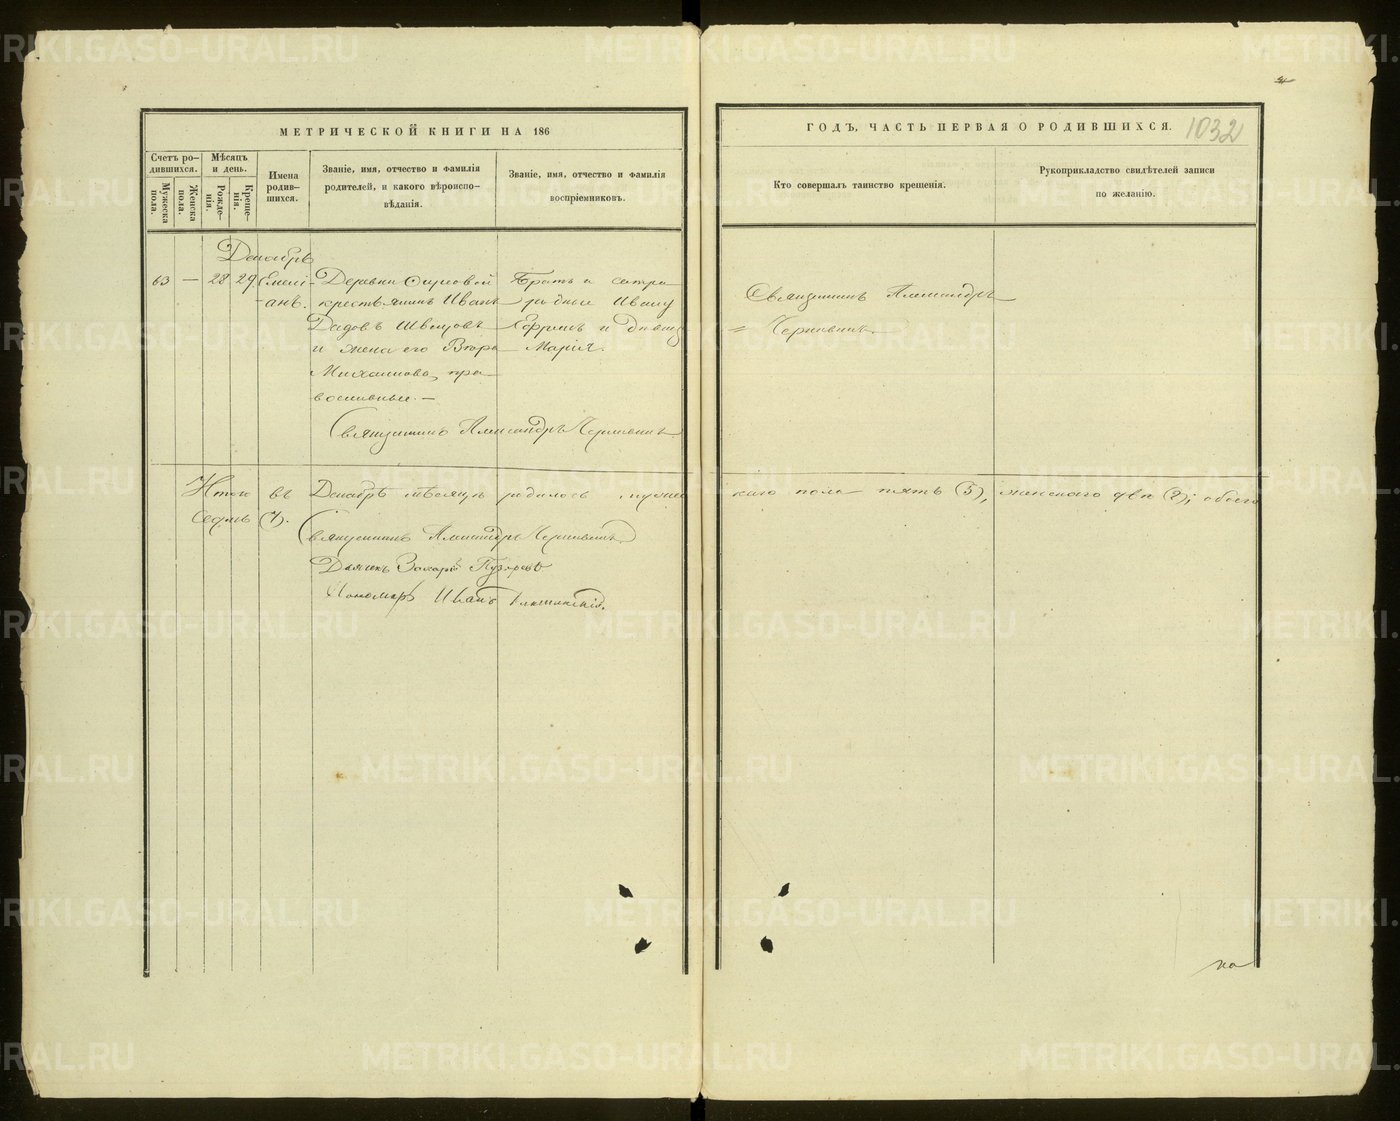 МЕТРИЧЕСКОЙ КНИГИ НА 186
ГОДЪ, ЧАСТЬ ПЕРВАЯ О РОДИВШИХСЯ.
1032
Счетъ ро-
дившихся.
Мужеска
пола.
Женска
пола.
Мѣсяцъ
и день.
Рожде-
нія.
Креще-
нія.
Имена
родив-
шихся.
Званіе, имя, отчество и фамилія
родителей, и какого вѣроиспо-
вѣданія.
Званіе, имя, отчество и фамилія
воспріемниковъ.
Кто совершалъ таинство крещенія.
Рукоприкладство свидѣтелей записи
по желанію.
Декабрь
63 — 28 29 Емелі-
анъ.
Деревни
крестьянинъ Иванъ
Швецовъ
и жена его
Михаилова, пра-
вославные. —
Братъ и сестра
родные Ивану
Ефремъ и девица
Марія.
Священникъ Александръ
Священникъ Александръ
Итого въ Декабрѣ мѣсяцѣ родилось мужес
каго пола пять (5), женскаго два (2); обоего
Семь (7).
Священникъ Александръ
Дьячекъ Захарій Пузыревъ
Пономарь Иванъ
METRIKI.GASO-URAL.RU